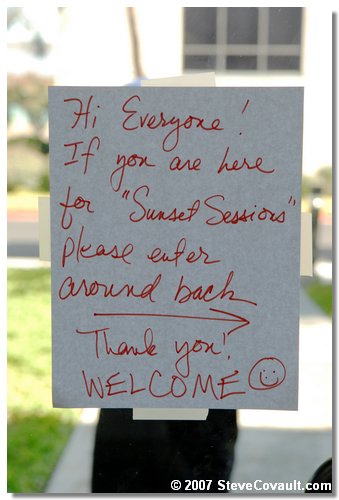 Hi Everyone!
If you are here
for "Sunset Sessions"
please enter
around back
Thank you!
WELCOME
© 2007 SteveCovault.com